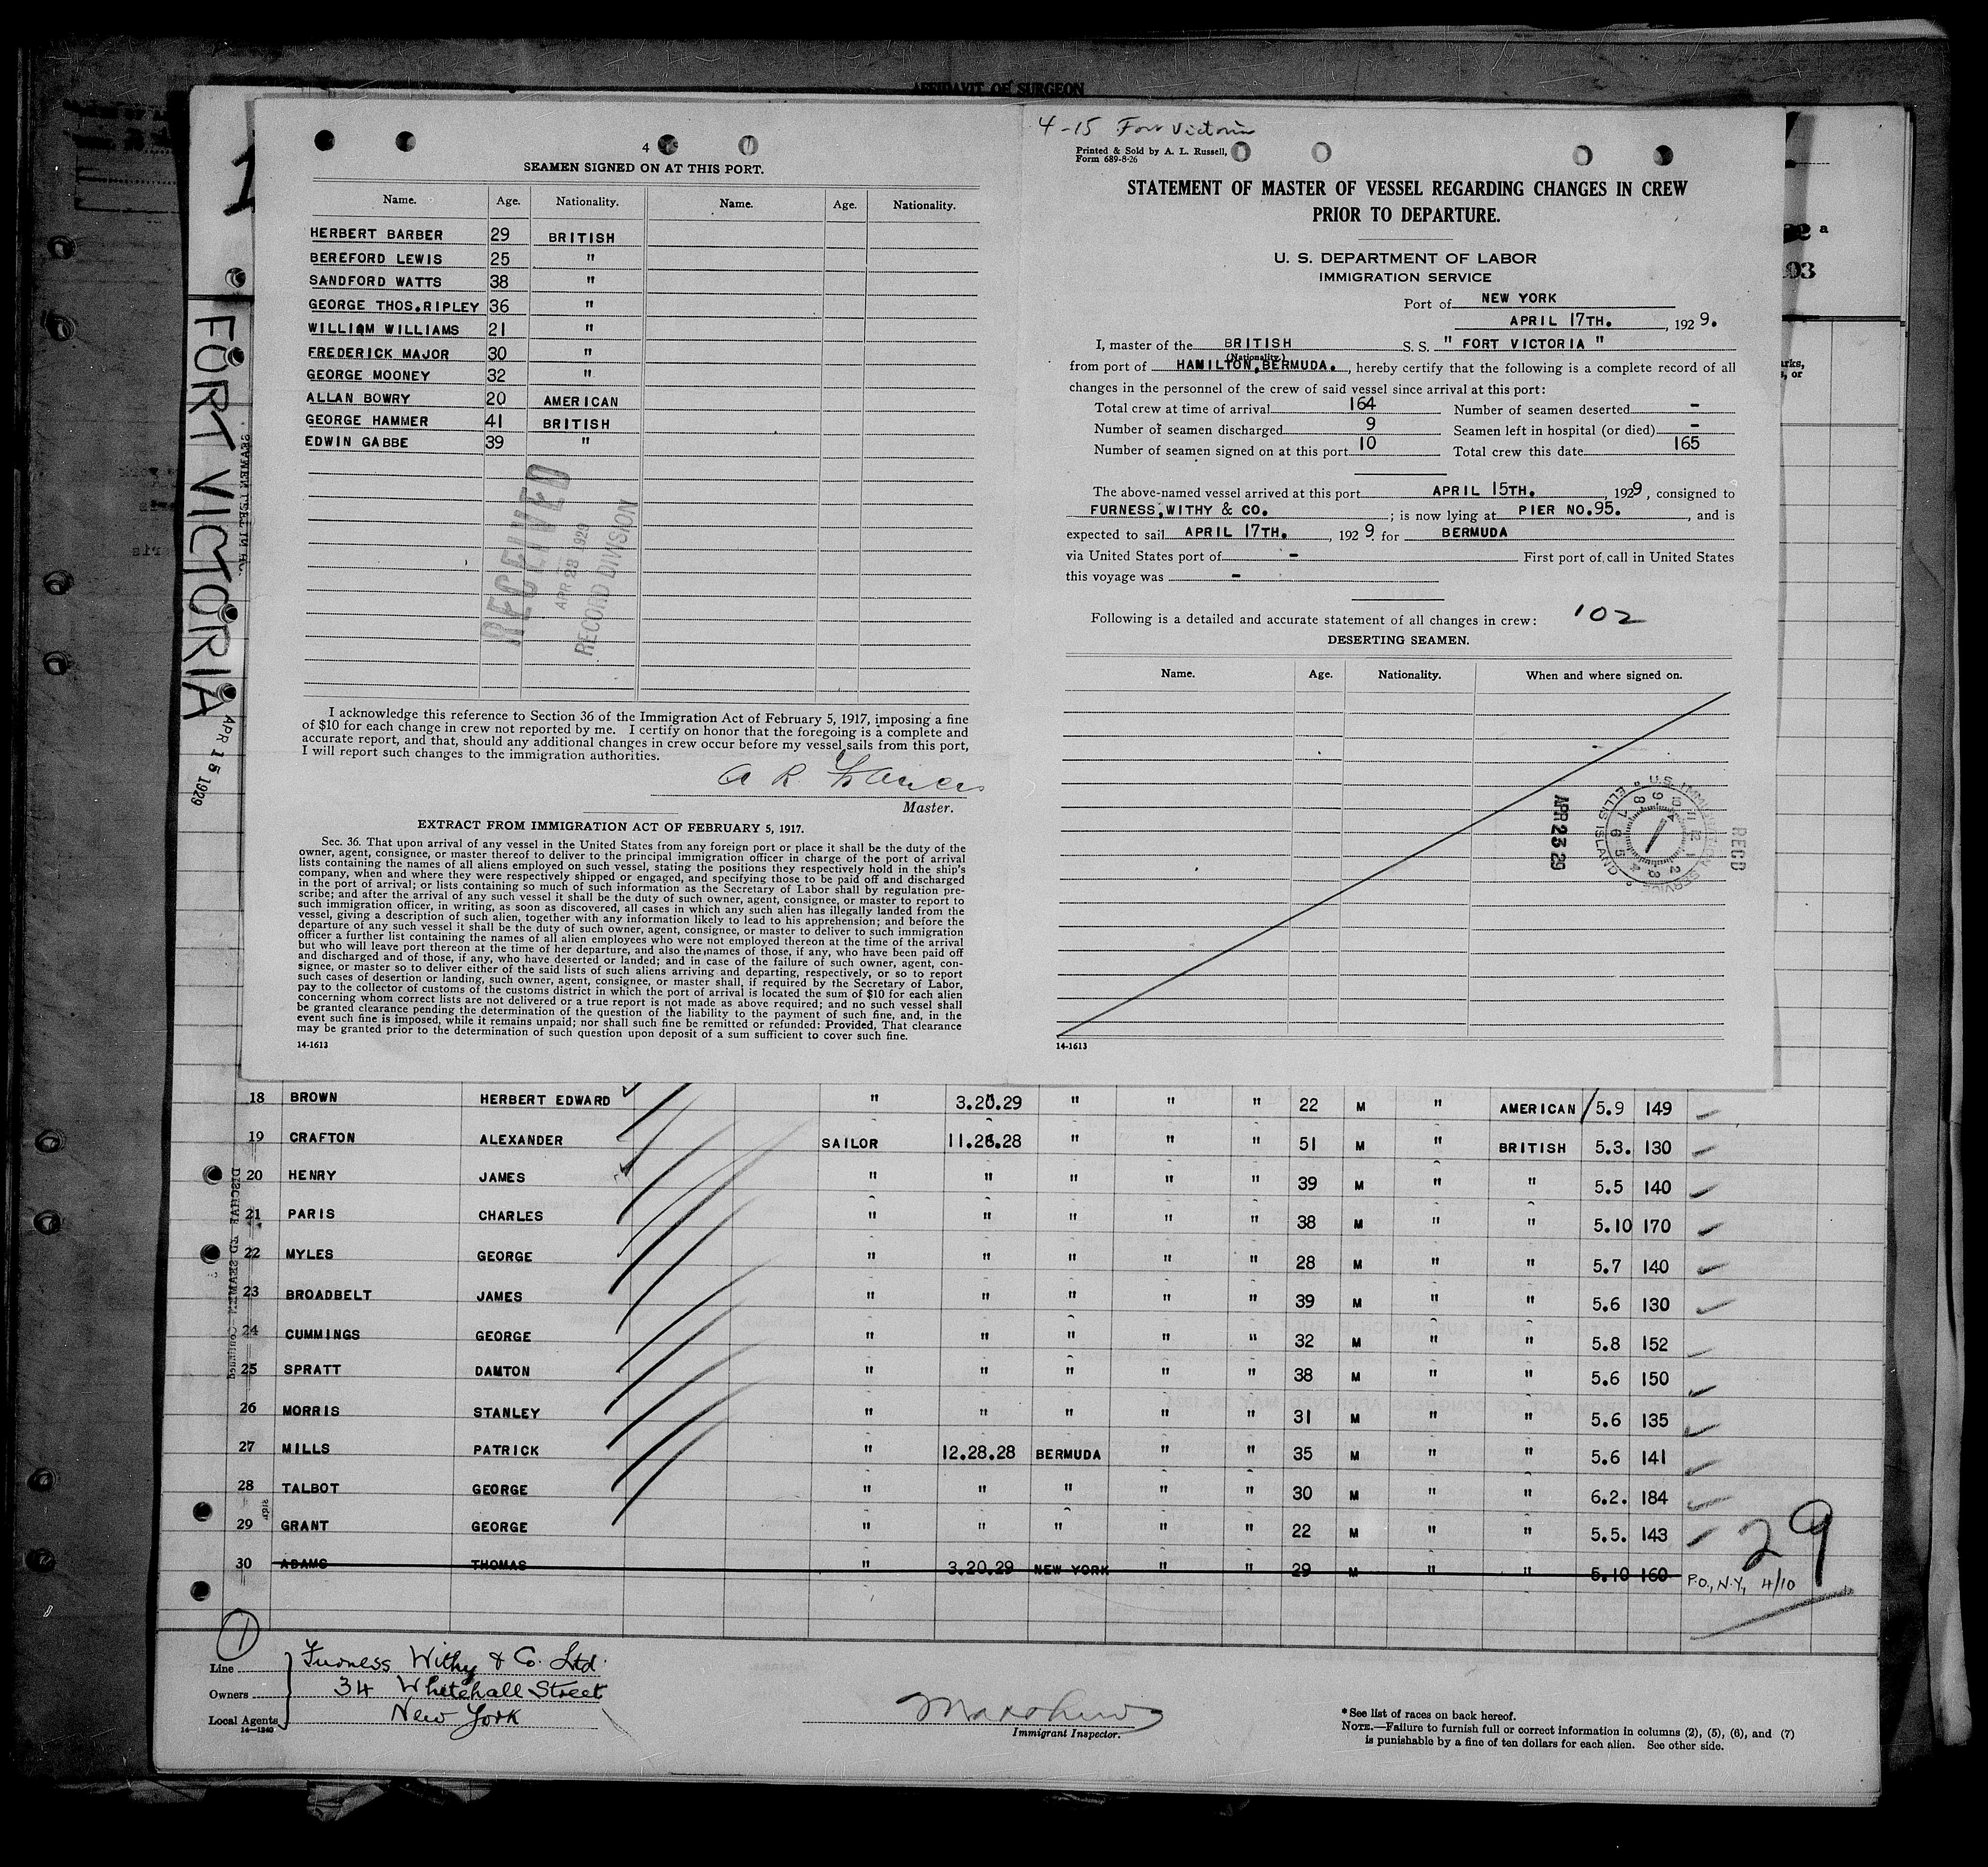 AFFIDAVIT OF SURGEON
4
SEAMEN SIGNED ON AT THIS PORT.
Name. Age. Nationality. Name. Age. Nationality.
HERBERT BARBER 29 BRITISH
BEREFORD LEWIS 25 "
SANDFORD WATTS 38 "
GEORGE THOS.RIPLEY 36 "
WILLIAM WILLIAMS 21 "
FREDERICK MAJOR 30 "
GEORGE MOONEY 32 "
ALLAN BOWRY 20 AMERICAN
GEORGE HAMMER 41 BRITISH
EDWIN GABBE 39 "
RECEIVED
APR 23 1929
RECORD DIVISION
I acknowledge this reference to Section 36 of the Immigration Act of February 5, 1917, imposing a fine
of $10 for each change in crew not reported by me. I certify on honor that the foregoing is a complete and
accurate report, and that, should any additional changes in crew occur before my vessel sails from this port,
I will report such changes to the immigration authorities.
A R Francis
Master.
EXTRACT FROM IMMIGRATION ACT OF FEBRUARY 5, 1917.
Sec. 36. That upon arrival of any vessel in the United States from any foreign port or place it shall be the duty of the
owner, agent, consignee, or master thereof to deliver to the principal immigration officer in charge of the port of arrival
lists containing the names of all aliens employed on such vessel, stating the positions they respectively hold in the ship's
company, when and where they were respectively shipped or engaged, and specifying those to be paid off and discharged
in the port of arrival; or lists containing so much of such information as the Secretary of Labor shall by regulation pre-
scribe; and after the arrival of any such vessel it shall be the duty of such owner, agent, consignee, or master to report to
such immigration officer, in writing, as soon as discovered, all cases in which any such alien has illegally landed from the
vessel, giving a description of such alien, together with any information likely to lead to his apprehension; and before the
departure of any such vessel it shall be the duty of such owner, agent, consignee, or master to deliver to such immigration
officer a further list containing the names of all alien employees who were not employed thereon at the time of the arrival
but who will leave port thereon at the time of her departure, and also the names of those, if any, who have been paid off
and discharged and of those, if any, who have deserted or landed; and in case of the failure of such owner, agent, con-
signee, or master so to deliver either of the said lists of such aliens arriving and departing, respectively, or so to report
such cases of desertion or landing, such owner, agent, consignee, or master shall, if required by the Secretary of Labor,
pay to the collector of customs of the customs district in which the port of arrival is located the sum of $10 for each alien
concerning whom correct lists are not delivered or a true report is not made as above required; and no such vessel shall
be granted clearance pending the determination of the question of the liability to the payment of such fine, and, in the
event such fine is imposed, while it remains unpaid; nor shall such fine be remitted or refunded: Provided, That clearance
may be granted prior to the determination of such question upon deposit of a sum sufficient to cover such fine.
14-1613
4-15 Fort Victoria
Printed & Sold by A. L. Russell,
Form 689-8-26
STATEMENT OF MASTER OF VESSEL REGARDING CHANGES IN CREW
PRIOR TO DEPARTURE.
U. S. DEPARTMENT OF LABOR
IMMIGRATION SERVICE
Port of NEW YORK
APRIL 17TH. , 192 9.
I, master of the BRITISH S. S. " FORT VICTORIA "
(Nationality.)
from port of HAMILTON,BERMUDA. , hereby certify that the following is a complete record of all
changes in the personnel of the crew of said vessel since arrival at this port:
Total crew at time of arrival 164 Number of seamen deserted -
Number of seamen discharged 9 Seamen left in hospital (or died) -
Number of seamen signed on at this port 10 Total crew this date 165
The above-named vessel arrived at this port APRIL 15TH. , 1929 , consigned to
FURNESS,WITHY & CO. ; is now lying at PIER NO.95. , and is
expected to sail APRIL 17TH. , 192 9. for BERMUDA
via United States port of - First port of call in United States
this voyage was -
Following is a detailed and accurate statement of all changes in crew: 102
DESERTING SEAMEN.
Name. Age. Nationality. When and where signed on.
REC'D
U.S. IMMIGRATION SERVICE
ELLIS ISLAND
APR 23 29
14-1613
FORT VICTORIA
APR 15 1929
18 BROWN HERBERT EDWARD " 3.20.29 " " " 22 M " AMERICAN 5.9 149
19 CRAFTON ALEXANDER SAILOR 11.26.28 " " " 51 M " BRITISH 5.3. 130
20 HENRY JAMES " " " " " 39 M " " 5.5 140
21 PARIS CHARLES " " " " " 38 M " " 5.10 170
22 MYLES GEORGE " " " " " 28 M " " 5.7 140
23 BROADBELT JAMES " " " " " 39 M " " 5.6 130
24 CUMMINGS GEORGE " " " " " 32 M " " 5.8 152
25 SPRATT DAMTON " " " " " 38 M " " 5.6 150
26 MORRIS STANLEY " " " " " 31 M " " 5.6 135
27 MILLS PATRICK " 12.28.28 BERMUDA " " 35 M " " 5.6 141
28 TALBOT GEORGE " " " " " 30 M " " 6.2. 184
29 GRANT GEORGE " " " " " 22 M " " 5.5. 143
30 ADAMS THOMAS " 3.20.29 NEW YORK " " 29 M " " 5.10 160 P.O., N.Y, 4/10
29
1
Line Furness Withy & Co. Ltd.
Owners 34 Whitehall Street
Local Agents New York
14-1240
Immigrant Inspector.
* See list of races on back hereof.
NOTE.—Failure to furnish full or correct information in columns (2), (5), (6), and (7)
is punishable by a fine of ten dollars for each alien. See other side.